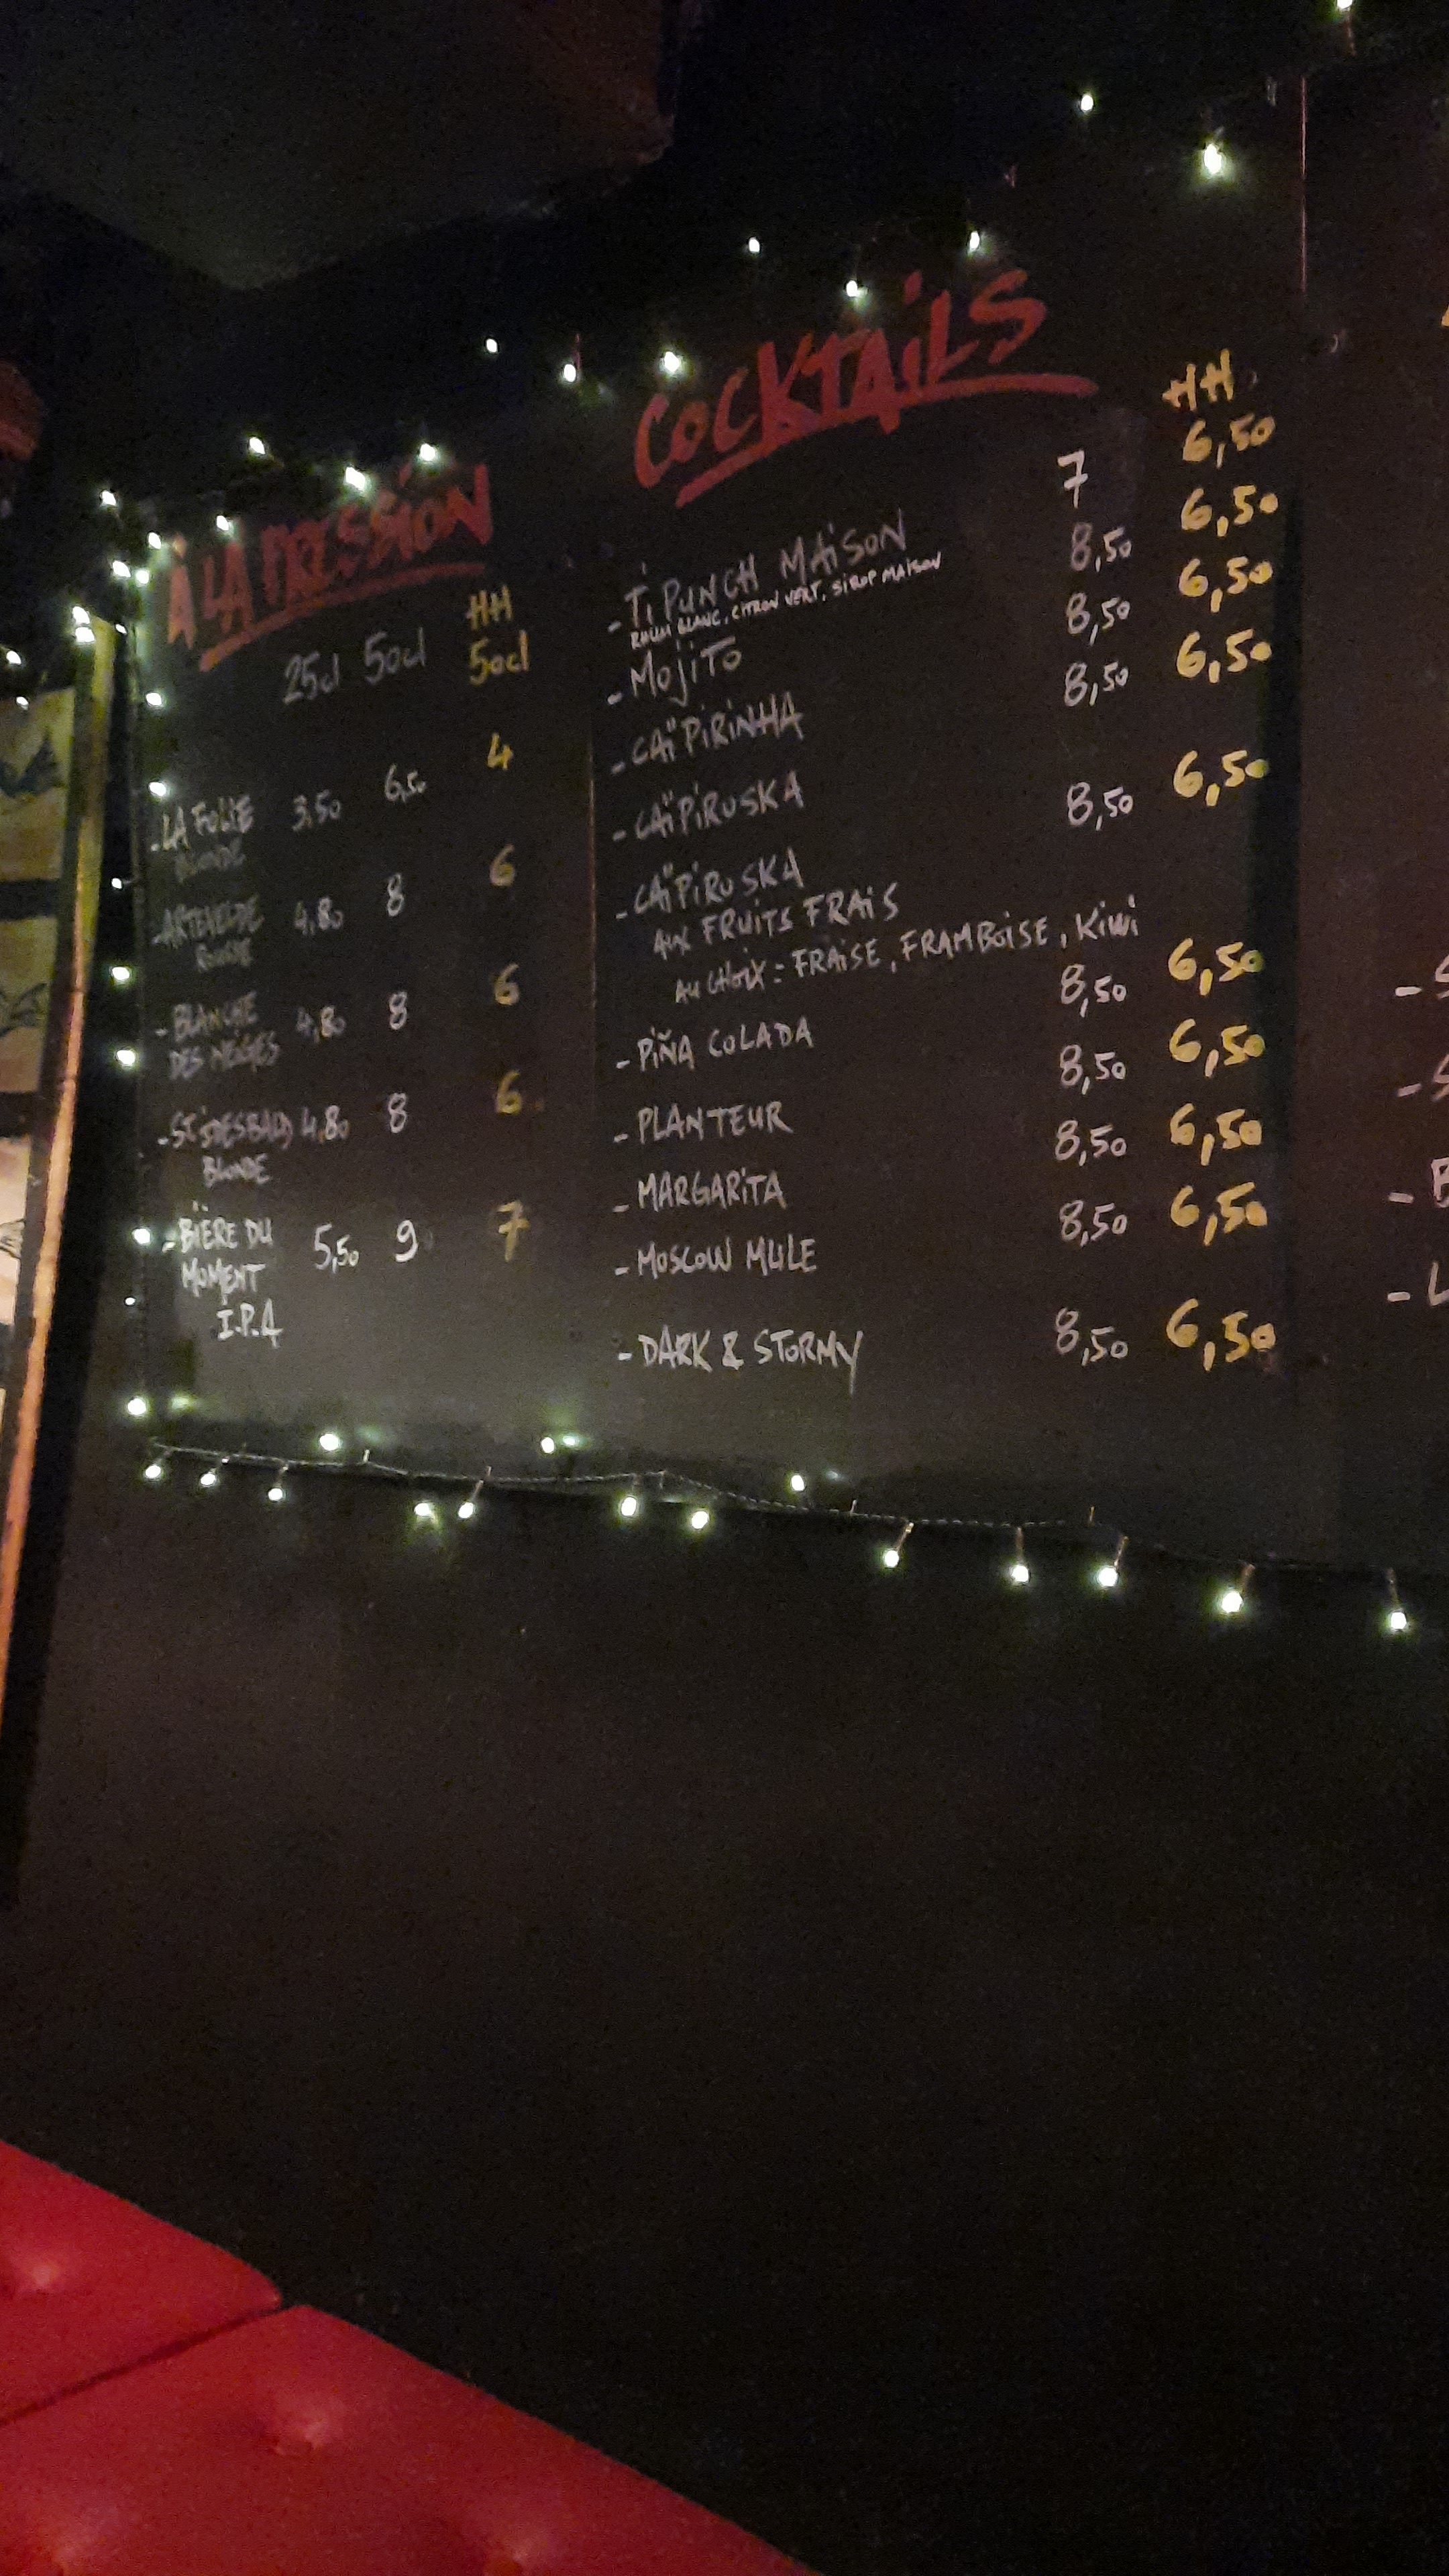 À LA PRESSION
HH
25cl 50cl 50cl
- LA FOLIE 3,50 6,50 4
BLONDE
- ARTEVELDE 4,80 8 6
ROUSSE
- BLANCHE 4,80 8 6
DES NEIGES
- ST IDESBALD 4,80 8 6
BLONDE
- BIÈRE DU 5,50 9 7
MOMENT
I.P.A
COCKTAILS
HH
- Ti PUNCH MAiSON 7 6,50
RHUM BLANC, CITRON VERT, SIROP MAISON
- MOJiTO 8,50 6,50
- CAÏPiRiNHA 8,50 6,50
- CAÏPiRUSKA 8,50 6,50
- CAÏPiRUSKA 8,50 6,50
AUX FRUiTS FRAiS
AU CHOiX = FRAiSE, FRAMBOiSE, KiWi
- PiÑA COLADA 8,50 6,50
- PLANTEUR 8,50 6,50
- MARGARiTA 8,50 6,50
- MOSCOW MULE 8,50 6,50
- DARK & STORMY 8,50 6,50